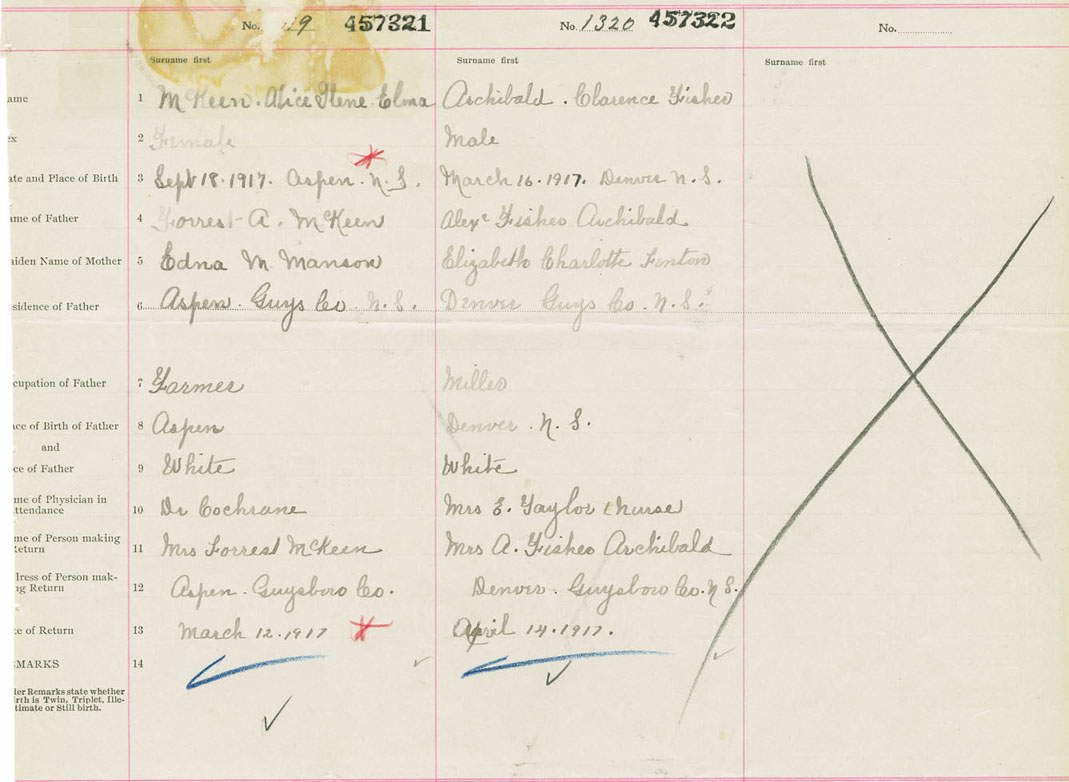 No. 19 457321 No. 1320 457322 No.
Surname first Surname first Surname first
ame 1 McKeen. Alice Ilene Elma Archibald. Clarence Fisher
ex 2 Female Male
ate and Place of Birth 3 Sept 18. 1917. Aspen. N.S. March 16. 1917. Denver N.S.
ame of Father 4 Forrest A. McKeen Alexr Fisher Archibald
aiden Name of Mother 5 Edna M. Manson Elizabeth Charlotte Fenton
sidence of Father 6 Aspen. Guys Co N.S. Denver Guys Co. N.S.
cupation of Father 7 Farmer Miller
ace of Birth of Father 8 Aspen Denver. N.S.
and
ce of Father 9 White White
me of Physician in
ttendance 10 Dr Cochrane Mrs E. Taylor nurse
me of Person making
Return 11 Mrs Forrest McKeen Mrs A. Fisher Archibald
dress of Person mak-
ng Return 12 Aspen. Guysboro Co. Denver. Guysboro Co. N.S.
te of Return 13 March 12. 1917 April 14. 1917.
EMARKS 14
der Remarks state whether
irth is Twin, Triplet, Ille-
timate or Still birth.